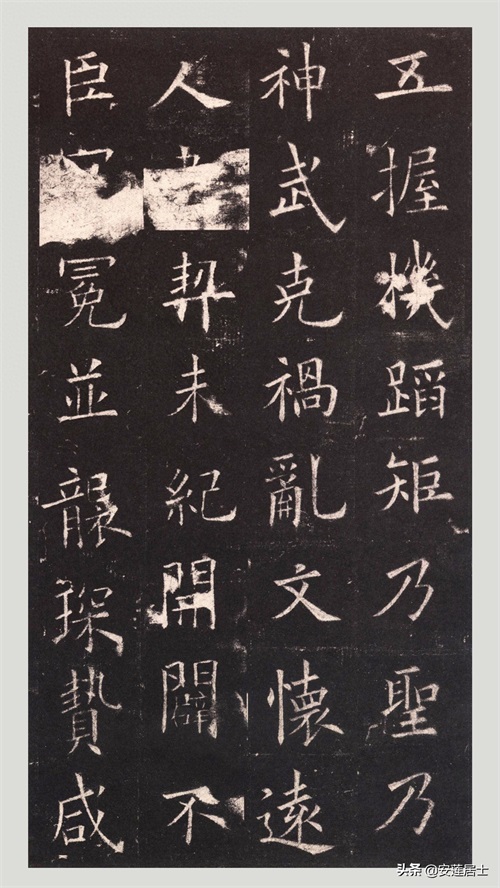 五握機蹈矩乃聖乃
神武克禍亂文懷遠
人契未紀開闢不
臣冕並襲琛贄咸
头条 @安蓮居士